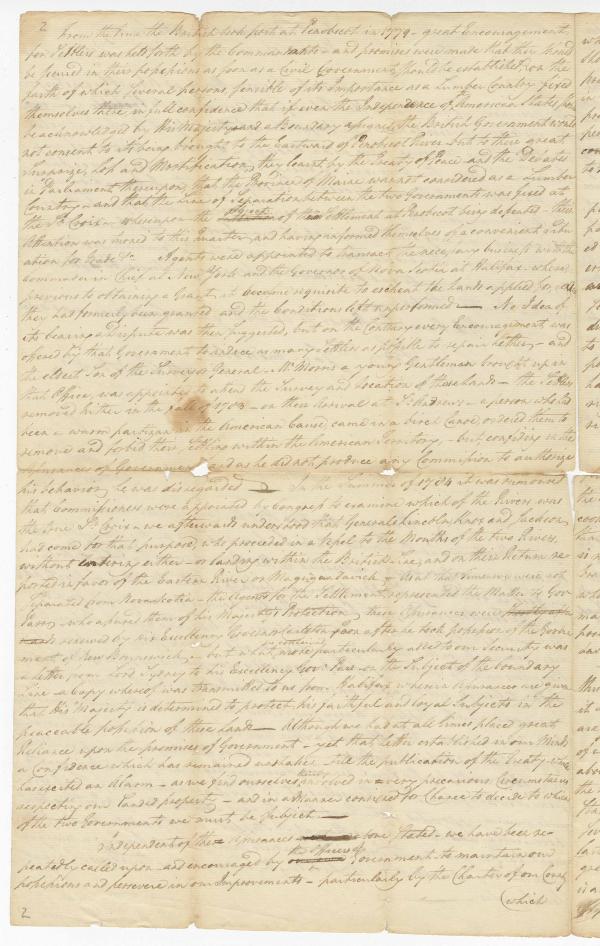 2
From the time the British took post at Penobscot in 1779 - great Encouragement
for Settlers was held forth by the Commandants - and promises were made that they should
be secured in their possessions as soon as a Civil Government should be established, on the
faith of which several persons sensible of its Importance as a Lumber Country fixed
themselves there in full confidence that if even the Independence of American States
be acknowledged by His Majesty and a Boundary assigned, the British Government would
not consent to its being brought to the Eastward of Penobscot River - but to their great
Surprize, Loss and Mortification, they learnt by the Treaty of Peace and the Debates
in Parliament thereupon that the Province of Maine was not considered as a Lumber
Country - and that the Line of separation between the two Governments was fixed at
the St. Croix - whereupon the object of their Settlement at Penobscot being defeated - their
Attention was moved to this quarter, and having informed themselves of a convenient situ-
ation for Trade &c. Agents were appointed to transact the necessary business with the
Commander in Chief at New York and the Governor of Nova Scotia at Halifax - where
previous to obtaining a Grant, it became requisite to escheat the Lands applied for,
they has formerly been granted and the Conditions left unperformed - No Idea of
its bearing a dispute was then suggested, but on the Contrary every Encouragement was
offered by that Government to induce as many Settlers as possible to repair hether, - and
the eldest Son of the Surveyor General - Mr. Morris a young Gentleman brought up in
that Office, was appointed to attend the Survey and Location of these Lands - the Settlers
removed hither in the fall of 1783 - on their Arrival at St. Andrews - a person who had
been a warm partizan in the American Cause, came in a birch Canoe, ordered them to
remove and forbid their settling within the American Territory, - but confiding in the
assurances of Government and as he did not produce any Commission to authorize
his behavior, he was disregarded - In the Summer of 1784 it was rumoured
that Commissioners were appointed by Congress to examine which of the Rivers was
the true St. Croix - we afterwards understood that Generals Lincoln, Knox and Jackson,
had come for that purpose, who proceeded in a Vessel to the Mouths of the two Rivers,
without entering either - or landing within the British Line, and on their Return re-
ported in favor of the Eastern River or Magiguadavick - At that time we were not
separated from Nova Scotia - the Agents for the Settlement represented the Matter to Gov
Parr - who assured them of his Majesty's Protection, these Assurances were
renewed by his Excellency Governor Carleton soon after he took possession of the Govern-
ment of New Brunswick, - but what more particularly added to our security was
a Letter from Lord Sydney to his Excellency Govr. Parr on the Subject of the boundary
Line a Copy whereof was transmitted to us from Halifax wherein Assurances are given
that His Majesty is determined to protect his faithful and loyal Subjects in the
peaceable possession of these Lands - Although we had at all times place great
Reliance upon the promises of Government - yet that Letter established in our Minds
a Confidence which has remained unshaken till the publication of the Treaty
has excited an Alarm - as we find ourselves thereby involved in a very precarious Circumstance
respecting our landed property - and in a Manner consigned to Chance to decide to which
of the two Governments we must be subject -
Independent of the assurances above stated - we have been re-
peatedly called upon - and encouraged by the officers of Government to maintain our
possessions and persevere in our Improvements - particularly by the Charter of our County
(which
2